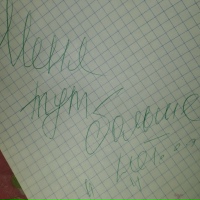 Меня
тут
больше
нет....